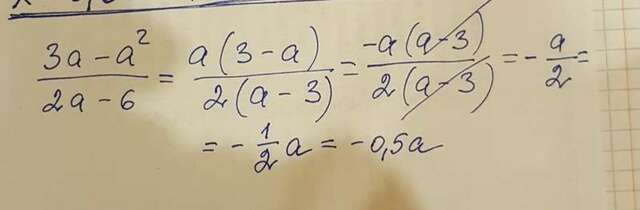 (3a - a²)/(2a - 6) = a(3 - a)/2(a - 3) = -a(a - 3)/2(a - 3) = - a/2 =
= - 1/2 a = -0,5a